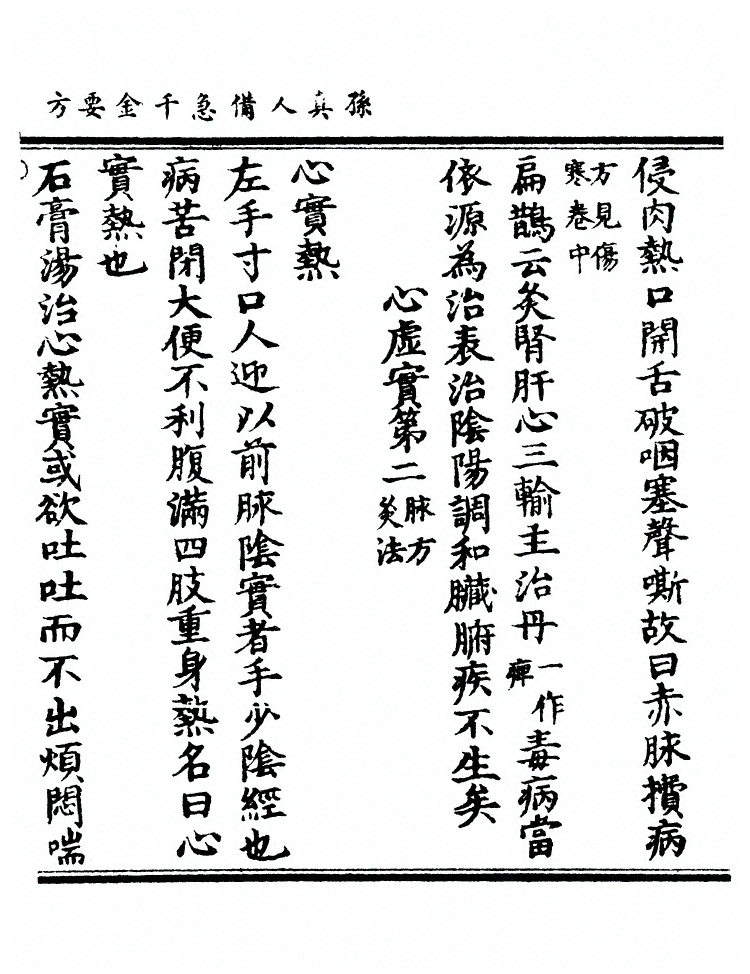 孫真人備急千金要方
侵肉熱口開舌破咽塞聲嘶故曰赤脉攢病
方見傷
寒卷中
扁鵲云灸腎肝心三輸主治丹一作𤺊毒病當
依源為治表治陰陽調和臟腑疾不生矣
心虛實第二脉方灸法
心實熱
左手寸口人迎以前脉陰實者手少陰經也
病苦閉大便不利腹滿四肢重身熱名曰心
實熱也
石膏湯治心熱實或欲吐吐而不出煩悶喘